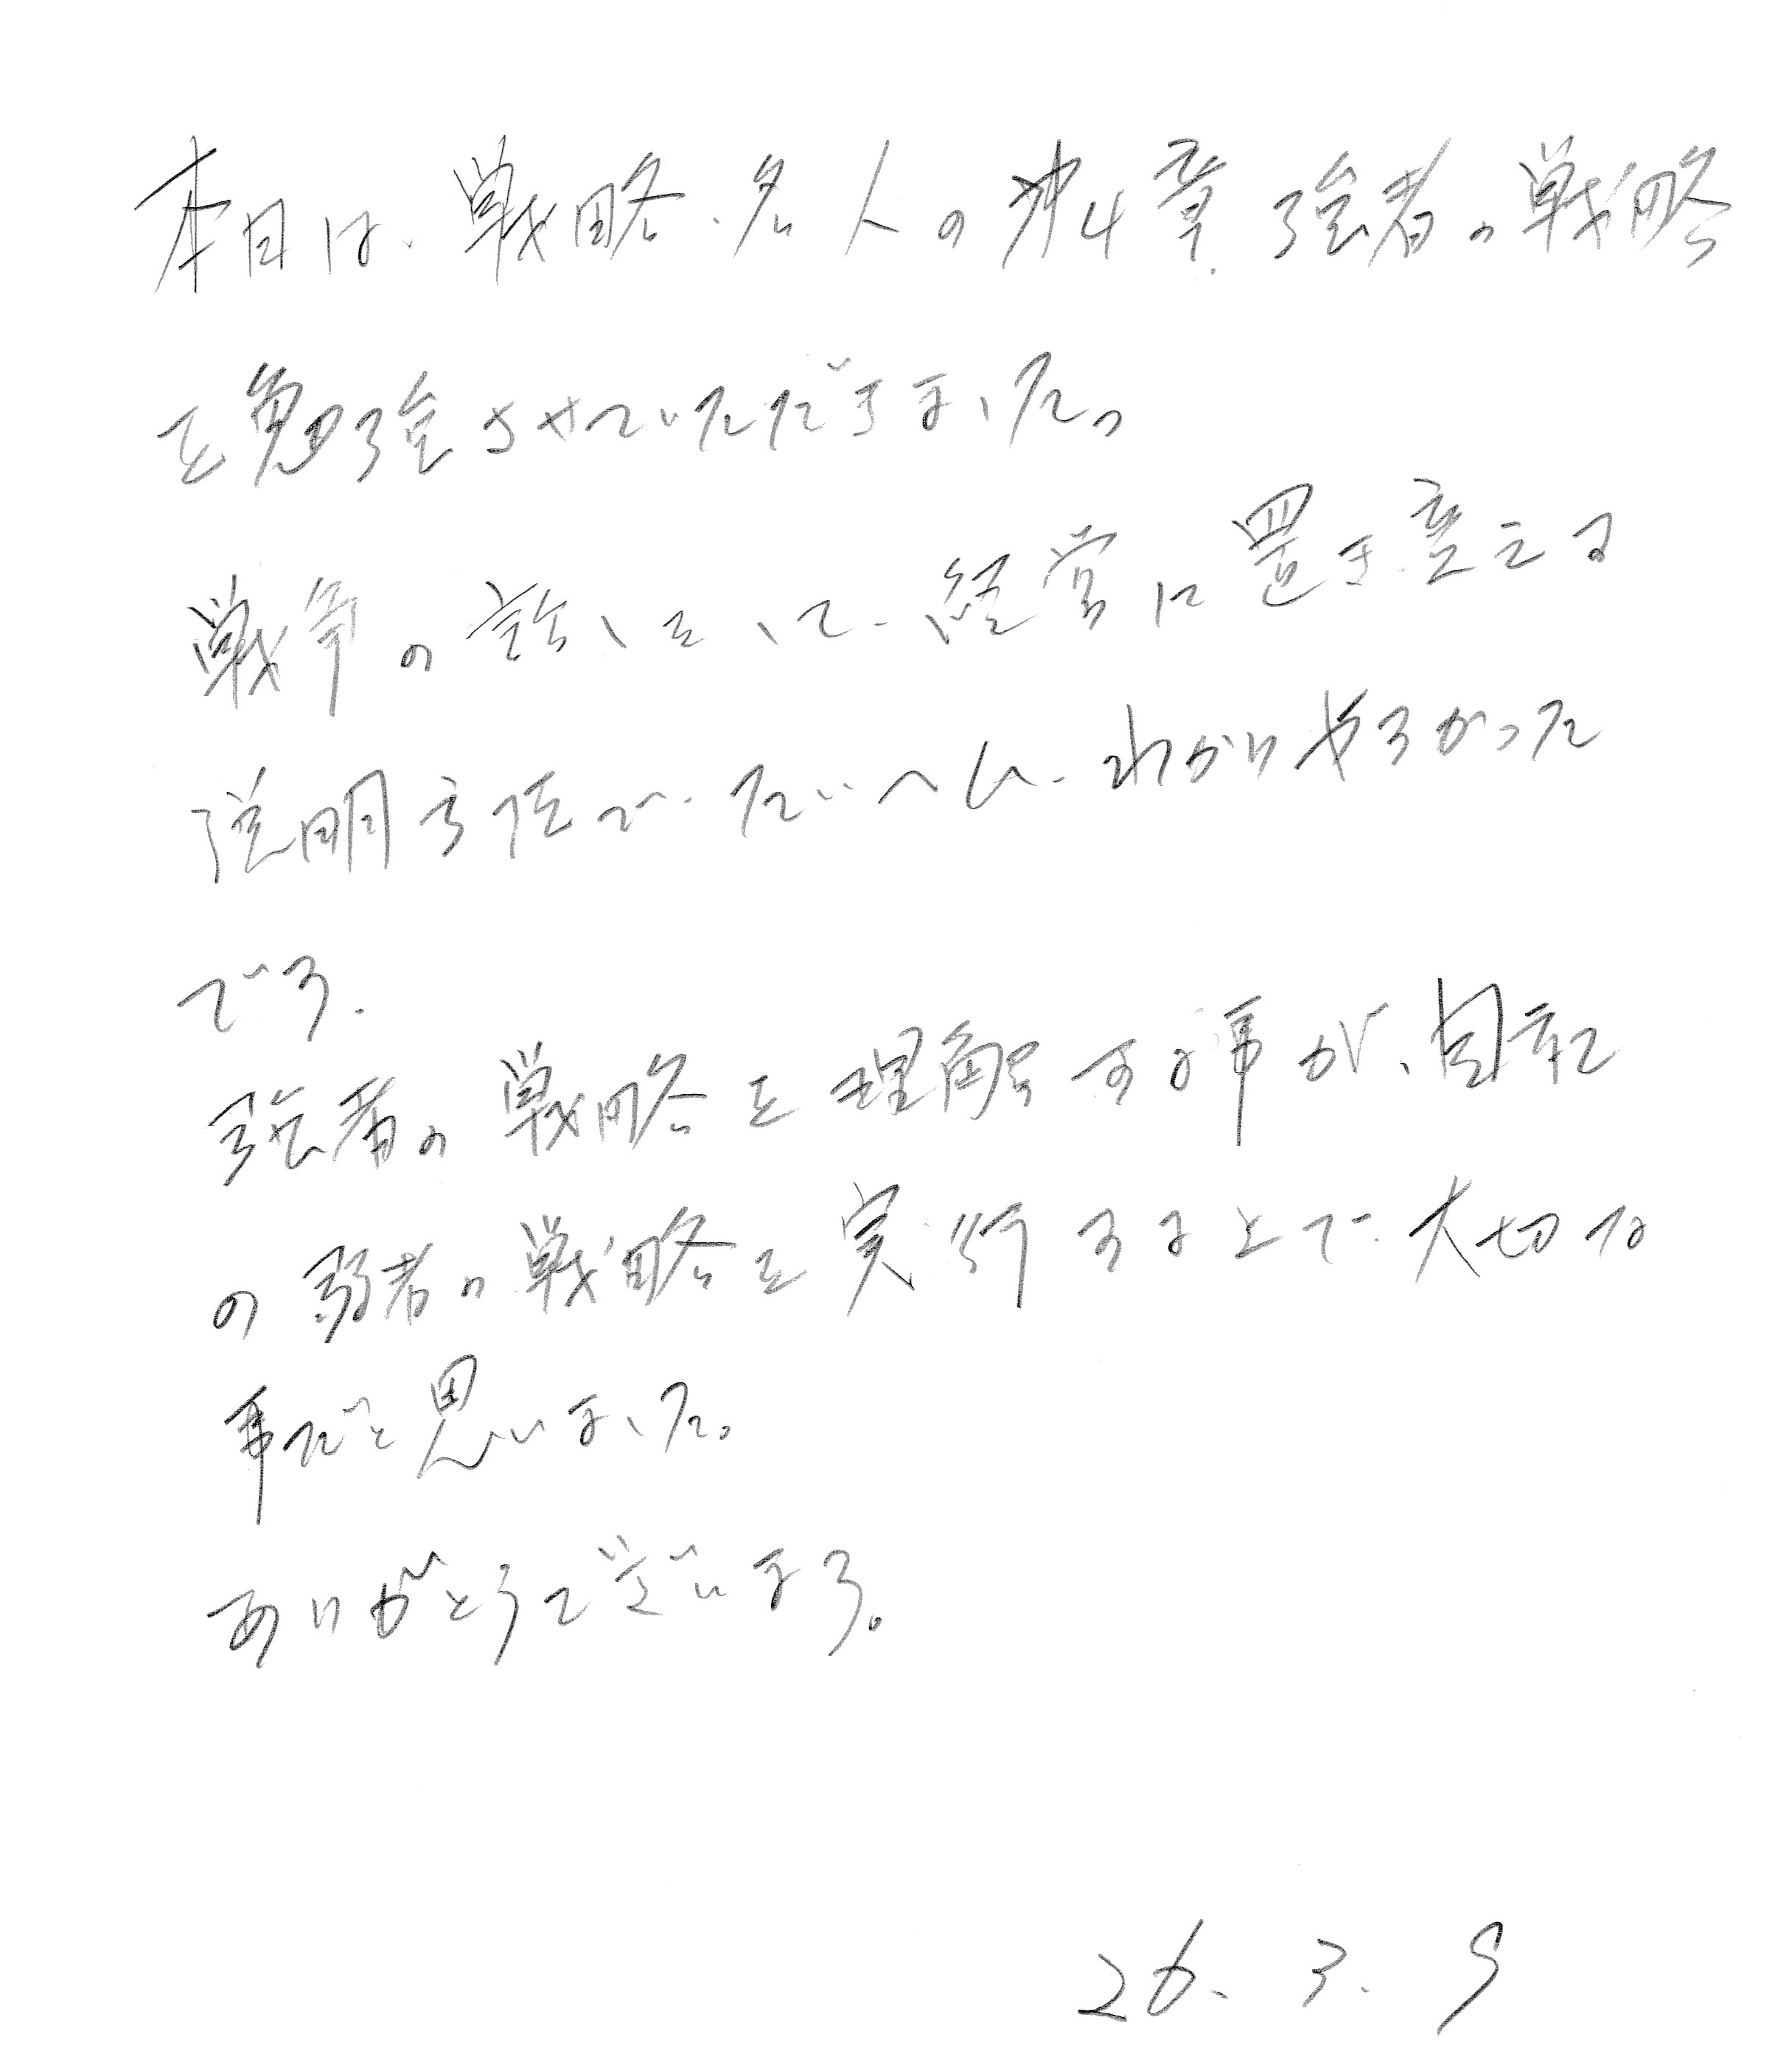 本日は、戦略名人の第4章 強者の戦略
を勉強させていただきました。
戦争の話しをして、経営に置き変える
説明方法で、たいへん、わかりやすかった
です。
強者の戦略を理解する事が、自社
の弱者の戦略を実行する上で、大切な
事だと思いました。
ありがとうございます。
26.3.9